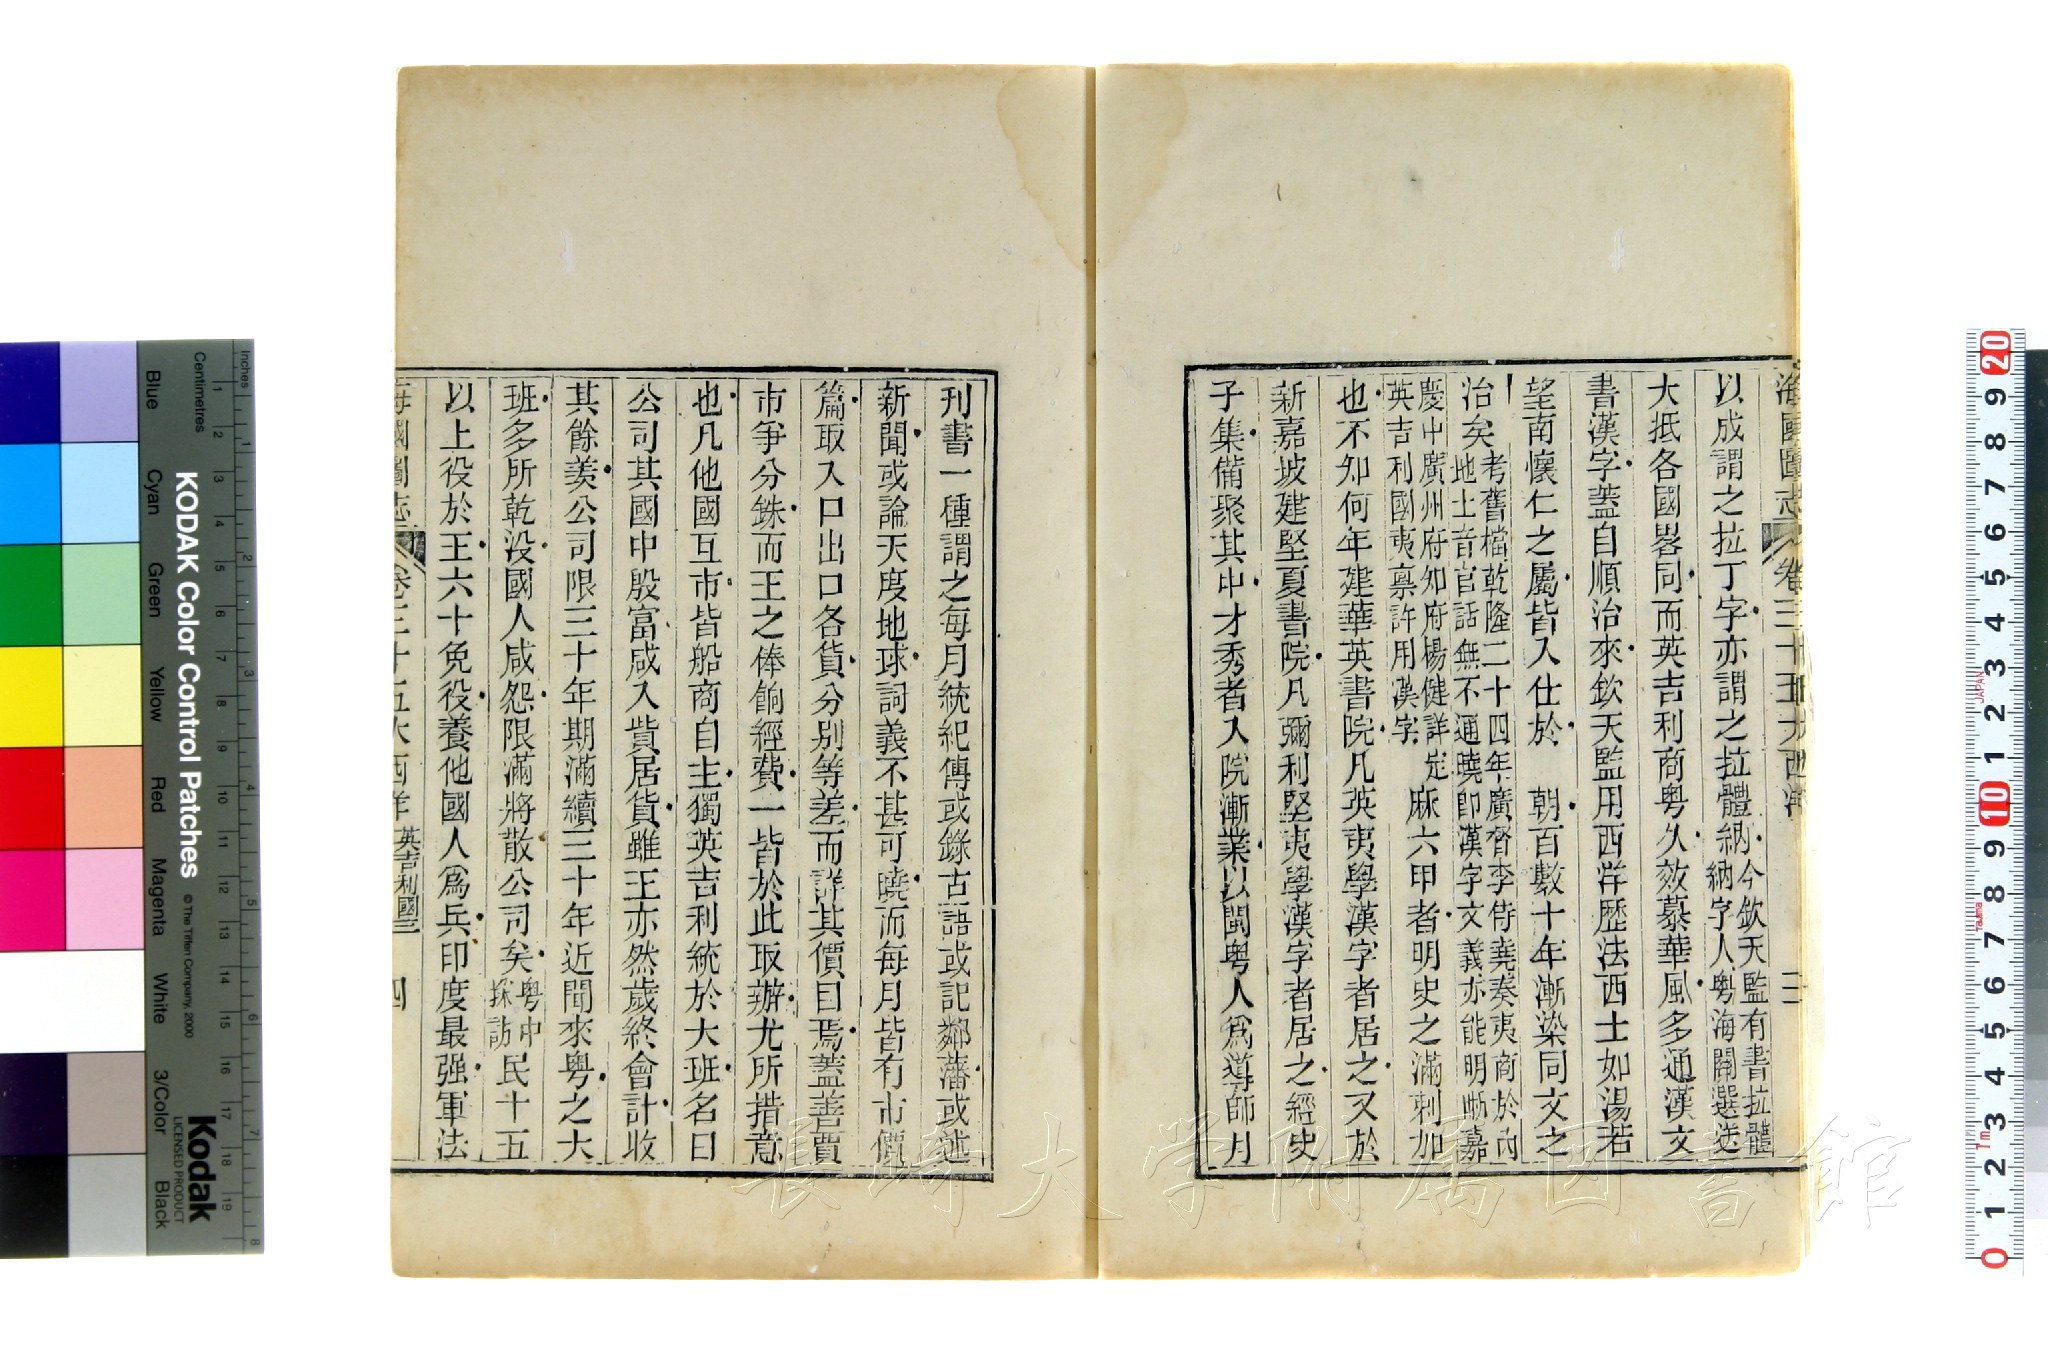 海國圖志 卷三十五大西洋 三
以成謂之拉丁字亦謂之拉體納今欽天監有書拉體
納字人粵海關選送
大抵各國畧同而英吉利商粵久效慕華風多通漢文
書漢字蓋自順治來欽天監用西洋歷法西士如湯若
望南懷仁之屬皆入仕於 朝百數十年漸染同文之
治矣考舊檔乾隆二十四年廣督李侍堯奏夷商於內
地土音官話無不通曉卽漢字文義亦能明晰嘉
慶中廣州府知府楊健詳定
英吉利國夷禀許用漢字
麻六甲者明史之滿剌加
也不知何年建華英書院凡英夷學漢字者居之又於
新嘉坡建堅夏書院凡彌利堅夷學漢字者居之經史
子集備聚其中才秀者入院漸業以閩粵人為導師月
刊書一種謂之每月統紀傳或錄古語或記鄰藩或述
新聞或論天度地球詞義不甚可曉而每月皆有市價
篇取入口出口各貨分別等差而詳其價曰焉蓋善賈
市爭分銖而王之俸餉經費一皆於此取辦尤所措意
也凡他國互市皆船商自主獨英吉利統於大班名曰
公司其國中殷富咸入貲居貨雖王亦然歲終會計收
其餘羨公司限三十年期滿續三十年近聞來粵之大
班多所乾没國人咸怨限滿將散公司矣粵中
採訪
民十五
以上役於王六十免役養他國人為兵印度最强軍法
海國圖志 卷三十五大西洋 英吉利國三 四
長崎大学附属図書館
KODAK Color Control Patches
© The Tiffen Company, 2000
Kodak
LICENSED PRODUCT
Inches
Centimetres
Blue
Cyan
Green
Yellow
Red
Magenta
White
3/Color
Black
JAPAN